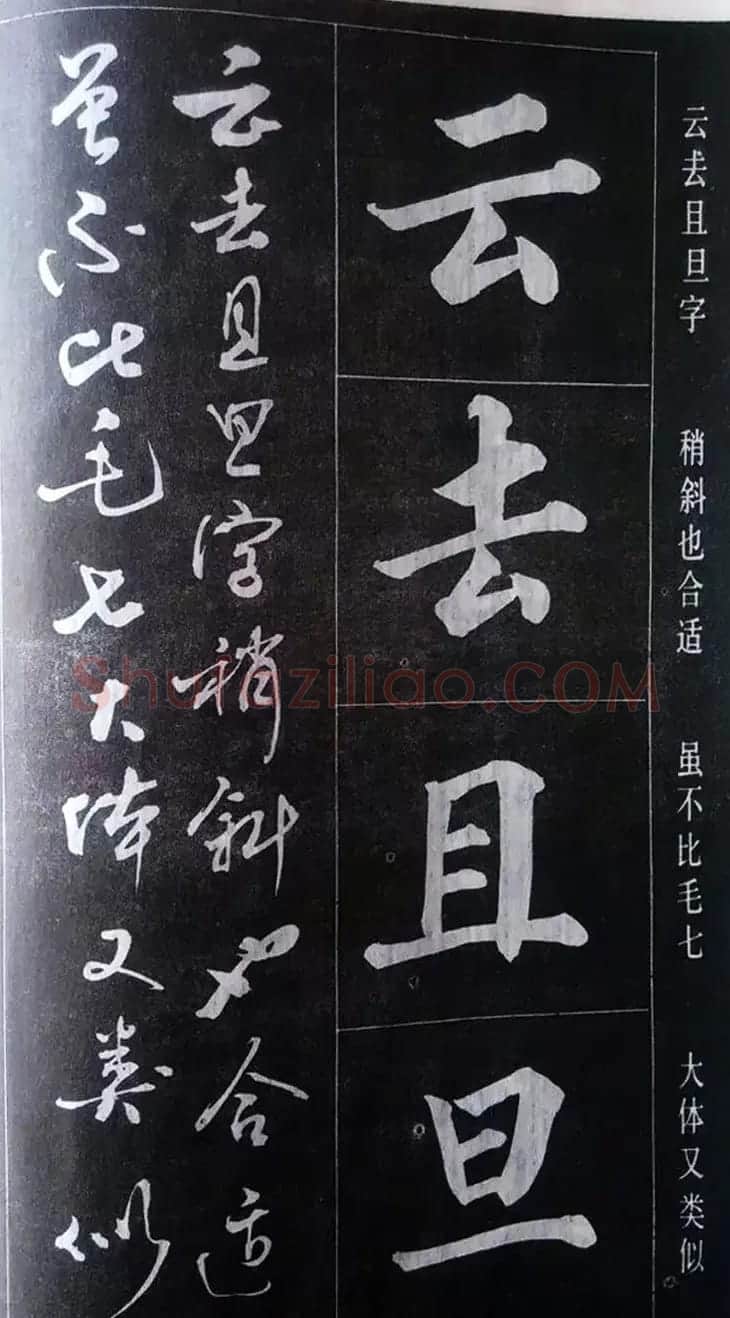 云去且旦字 稍斜也合适 虽不比毛七 大体又类似
云
去
且
旦
云去且旦字稍斜也合适
虽不比毛七大体又类似
Shufaziliao.COM